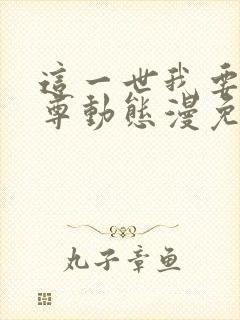 這一世我要
尊動態漫免
丸子章鱼